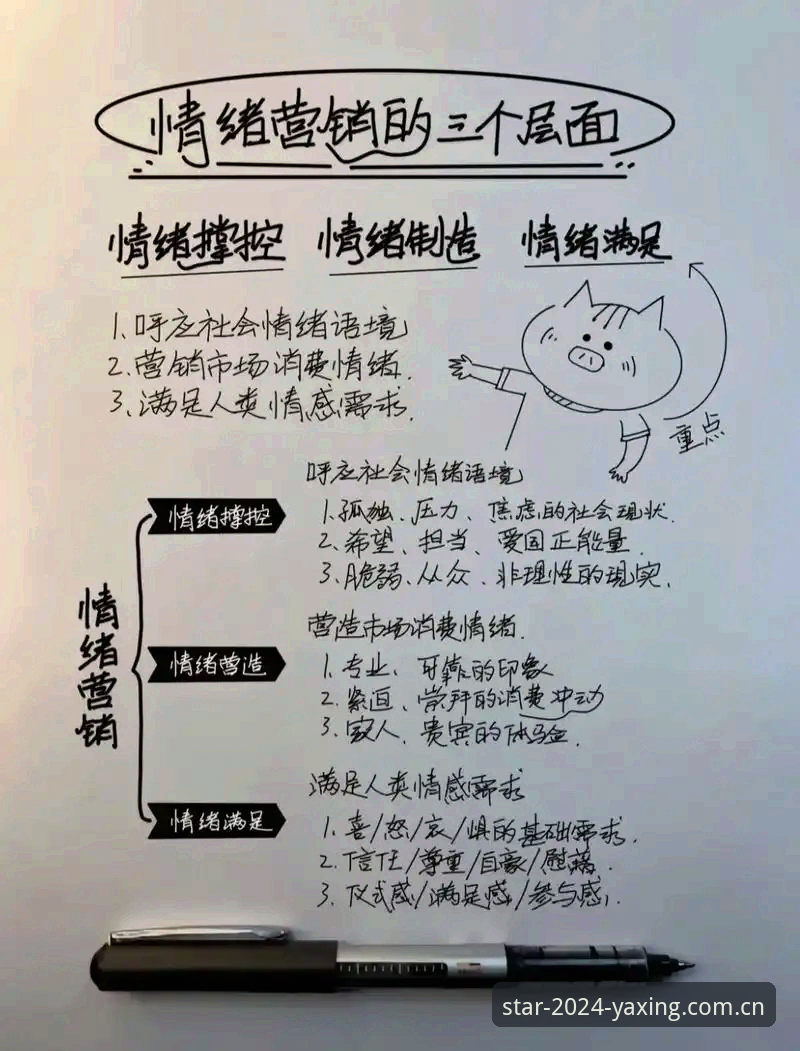 情绪营销的三个层面
情绪撑控 情绪制造 情绪满足
1.呼应社会情绪语境
2.营销市场消费情绪.
3.满足人类情感需求.
重点
呼应社会情绪语境
情绪撑控
1.孤独、压力、焦虑的社会现状.
2.希望、担当、爱国正能量.
3.脆弱、从众、非理性的现实.
情绪营销
营造市场消费情绪.
情绪营造
1.专业、可靠的印象
2.紧迫、崇拜的消费冲动
3.家人、贵宾的体验.
满足人类情感需求
情绪满足
1.喜/怒/哀/惧的基础需求.
2.信任/尊重/自豪/慰藉.
3.仪式感/满足感/参与感.
star-2024-yaxing.com.cn